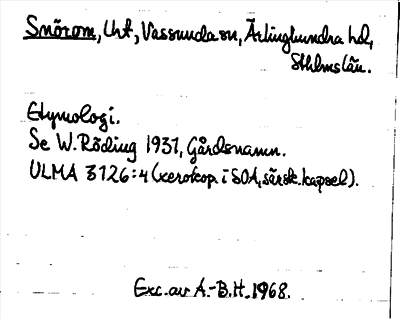 Snörom, Urt, Vassunda sn, Ärlinghundra hd,
Sthlms län.
Etymologi.
Se W. Röding 1931, Gårdsnamn.
ULMA 3126:4 (xerokop. i SOA, särsk. kapsel).
Exc. av A.-B.H. 1968.